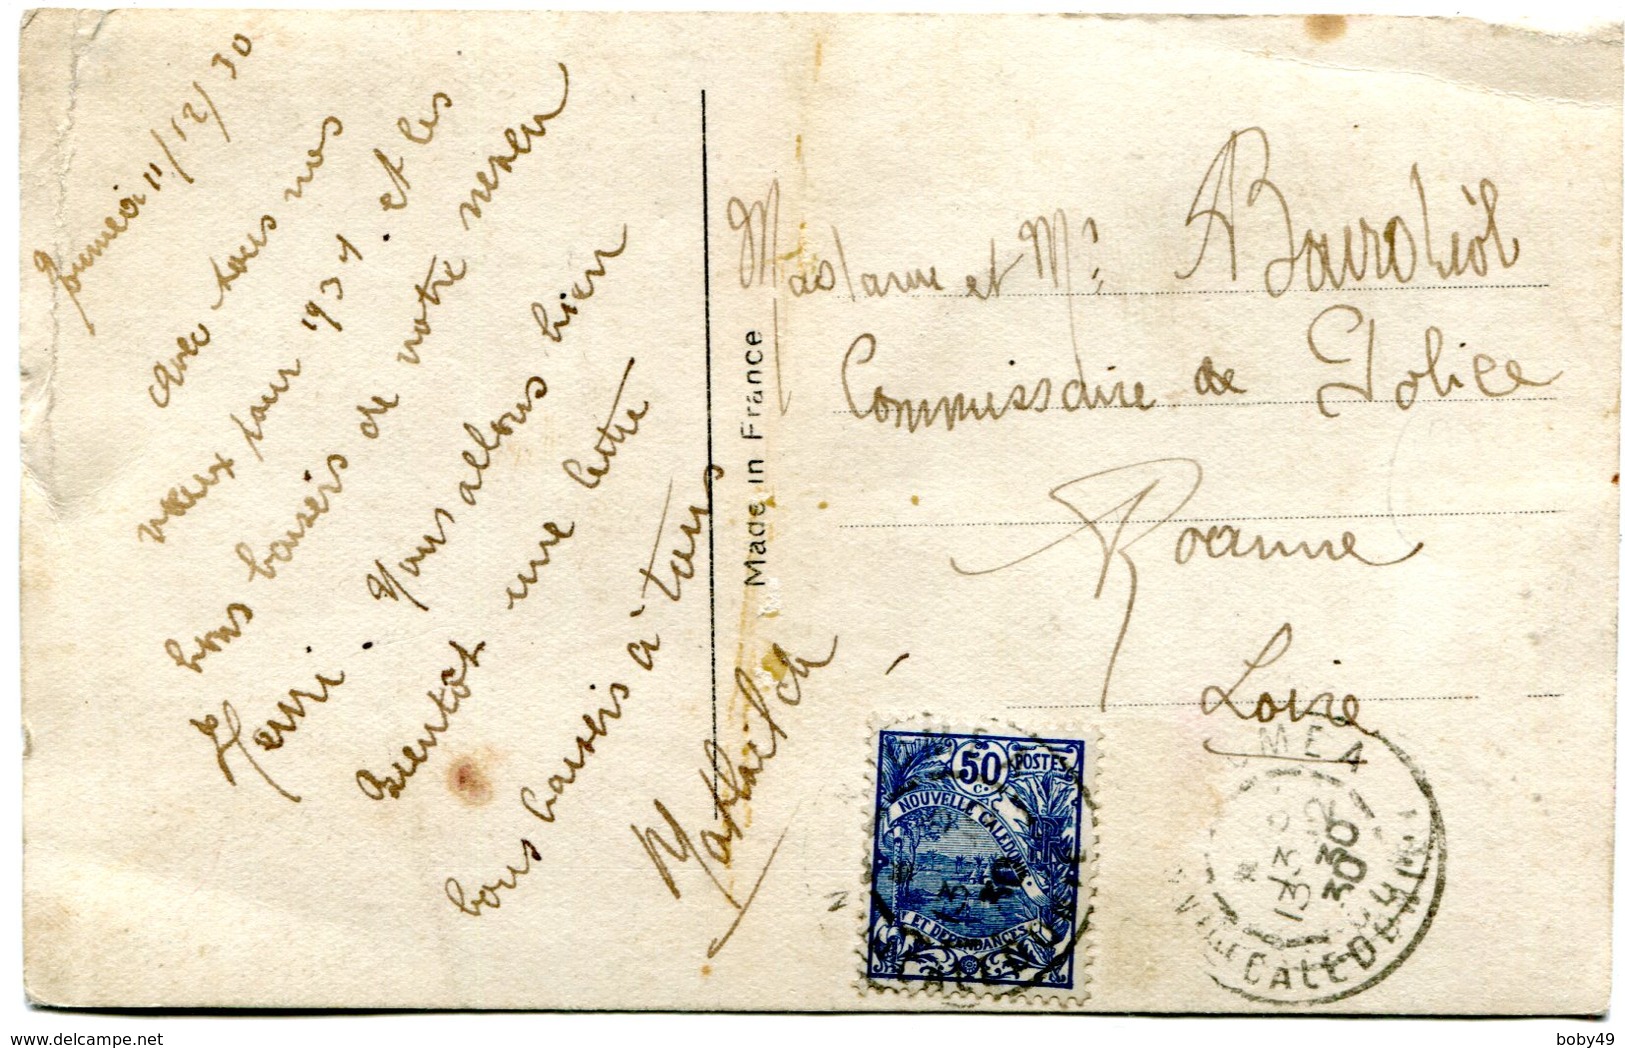 Nouméa 11/12/30
avec tous nos
vœux pour 1931 et les
bons baisers de notre neveu
Henri. Nous allons bien
Bientot une lettre
bons baisers à tous
Made in France
Madame et Mr
Commissaire de Police
Roanne
Loire
50
c.
POSTES
NOUVELLE CALEDONIE
RF
ET DEPENDANCES
NOUMEA
13-12
30
Nlle CALEDONIE
boby49